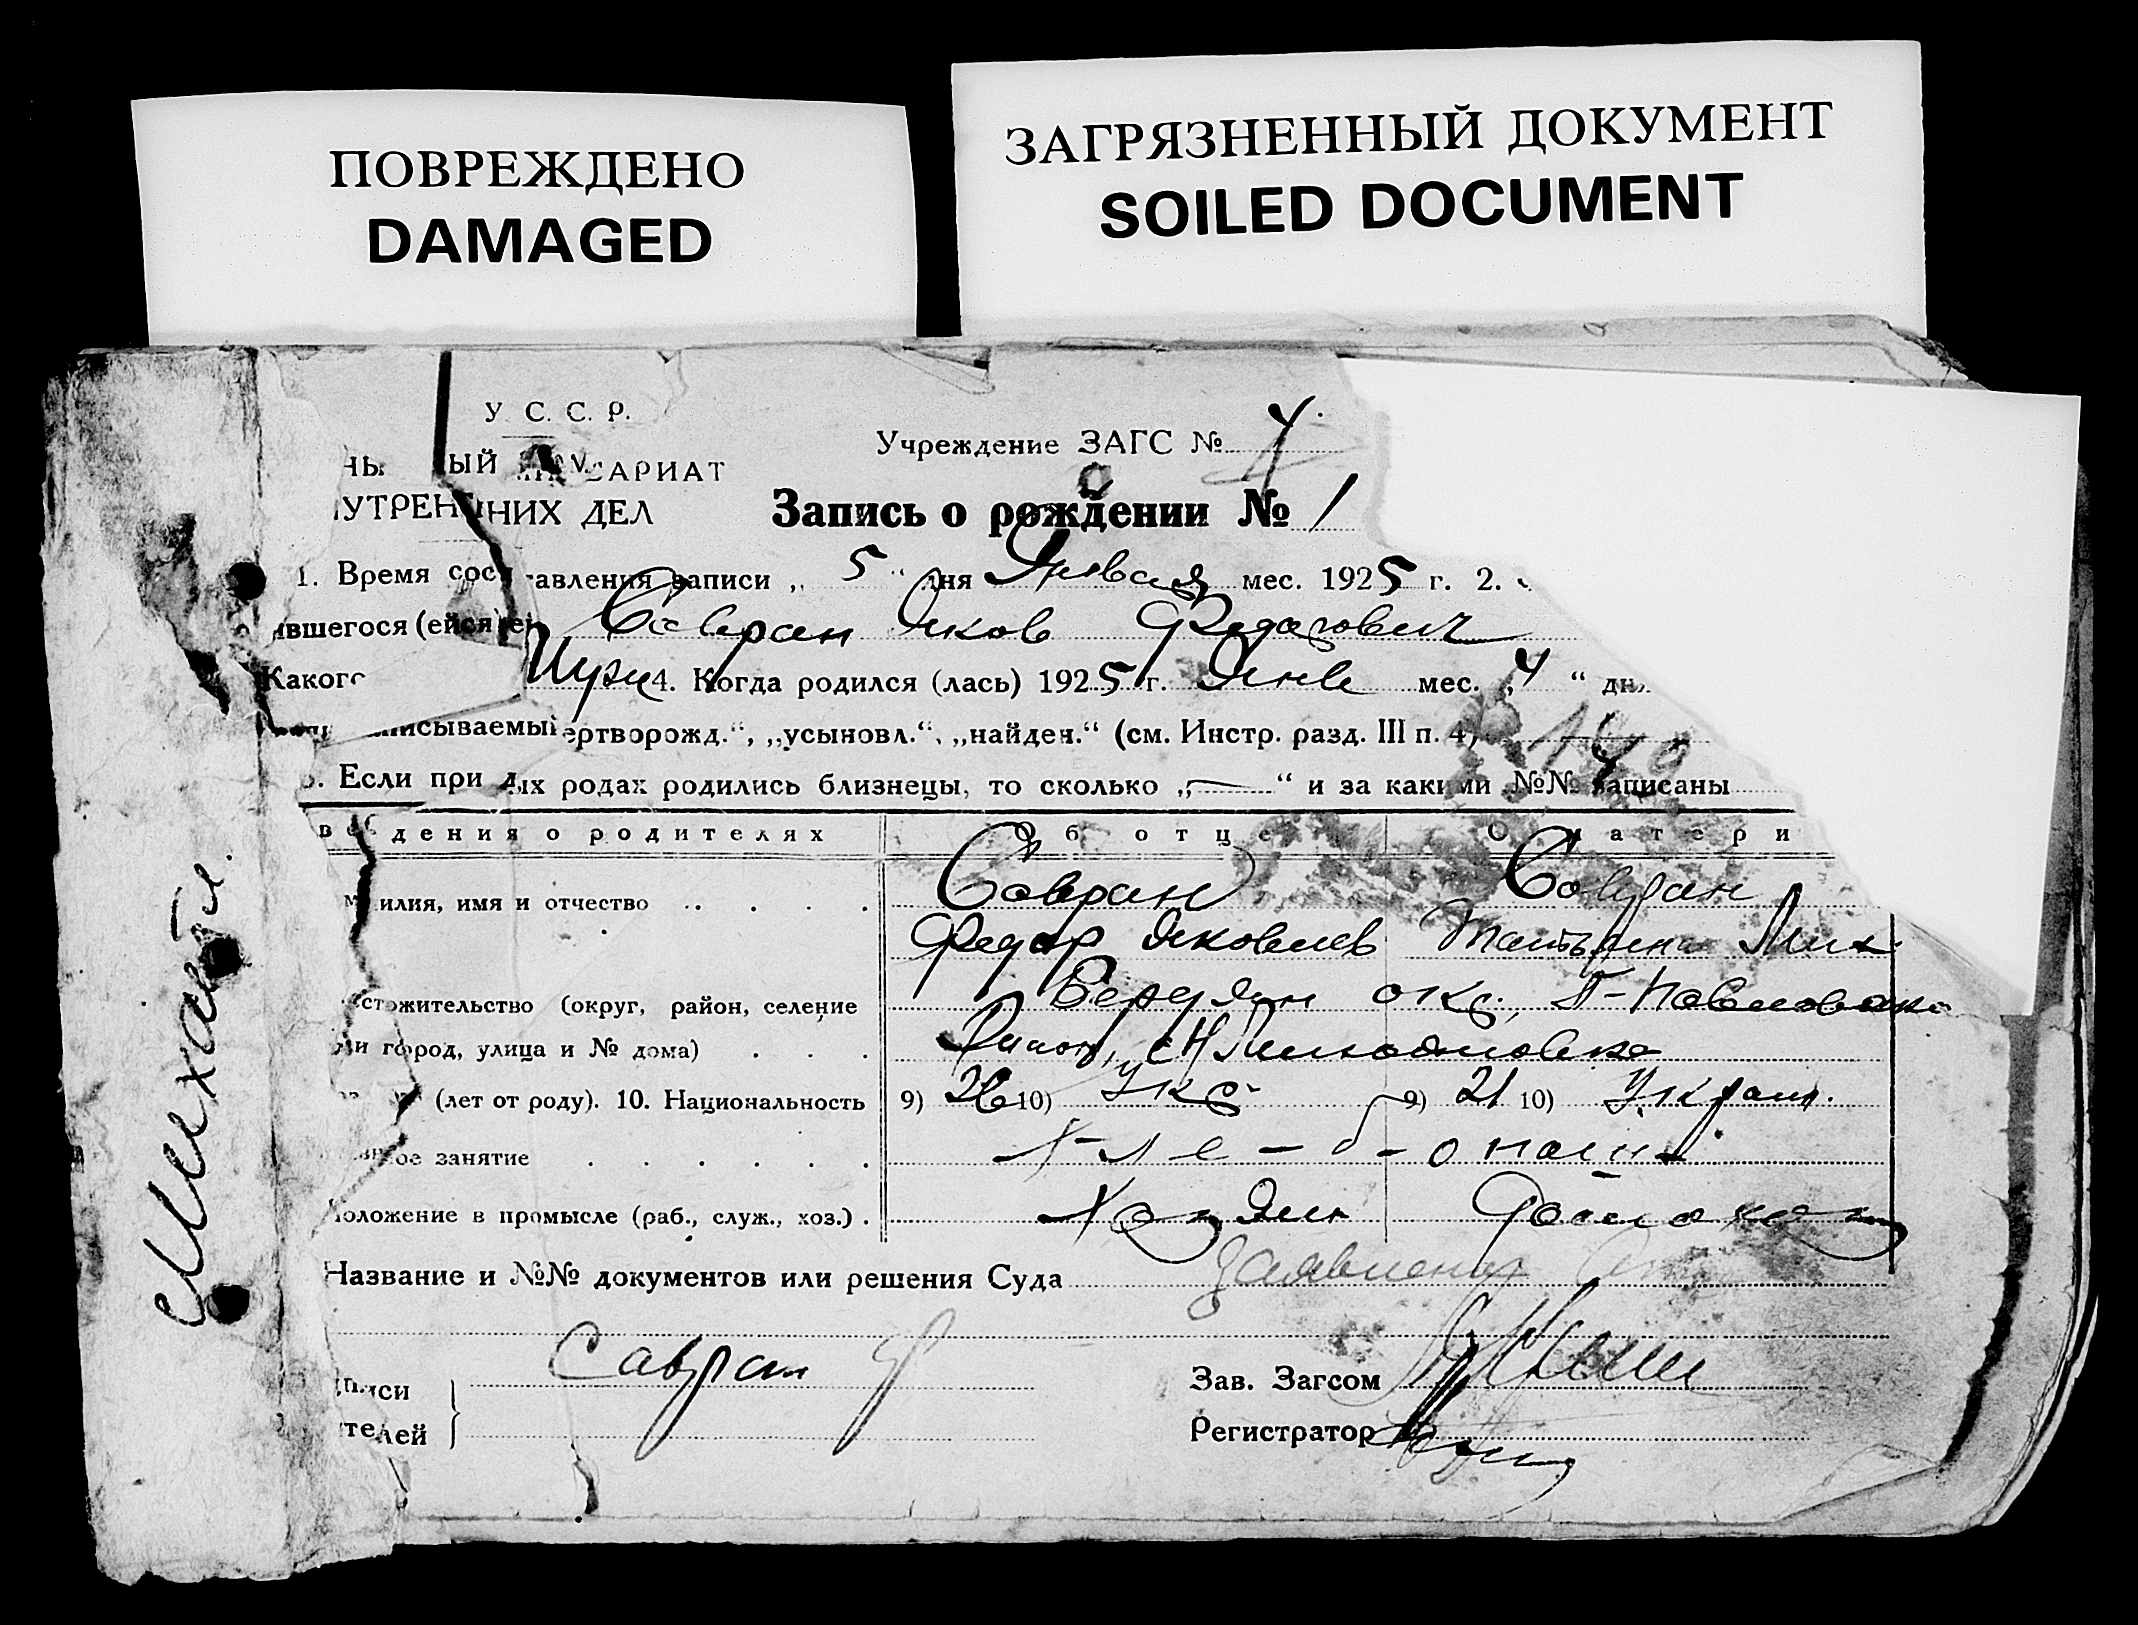 ПОВРЕЖДЕНО
DAMAGED
ЗАГРЯЗНЕННЫЙ ДОКУМЕНТ
SOILED DOCUMENT
У. С. С. Р.
НЫЙ САРИАТ
УТРЕННИХ ДЕЛ
Учреждение ЗАГС № 4
Запись о рождении № 1
1. Время составления записи „ 5 “ дня Января мес. 1925 г. 2.
ившегося (ейся) Савран Яков Федорович
Какого Муж 4. Когда родился (лась) 1925 г. Янв мес. „ 4 “ дня
исываемый ертворожд.“, „усыновл.“, „найден.“ (см. Инстр. разд. III п. 4)
5. Если при родах родились близнецы, то сколько „ — “ и за какими №№ записаны
ведения о родителях Об отце О матери
милия, имя и отчество Савран Савран
Федор Яковлев Татьяна Мих
стожительство (округ, район, селение Бердян окр.,
или город, улица и № дома)
(лет от роду). 10. Национальность 9) 26 10) Укр 9) 21 10) Украин.
вное занятие Хле-б-опаш
Положение в промысле (раб., служ., хоз.) Хозяин
Название и №№ документов или решения Суда Заявление
Савран Ф
писи
телей
Зав. Загсом
Регистратор